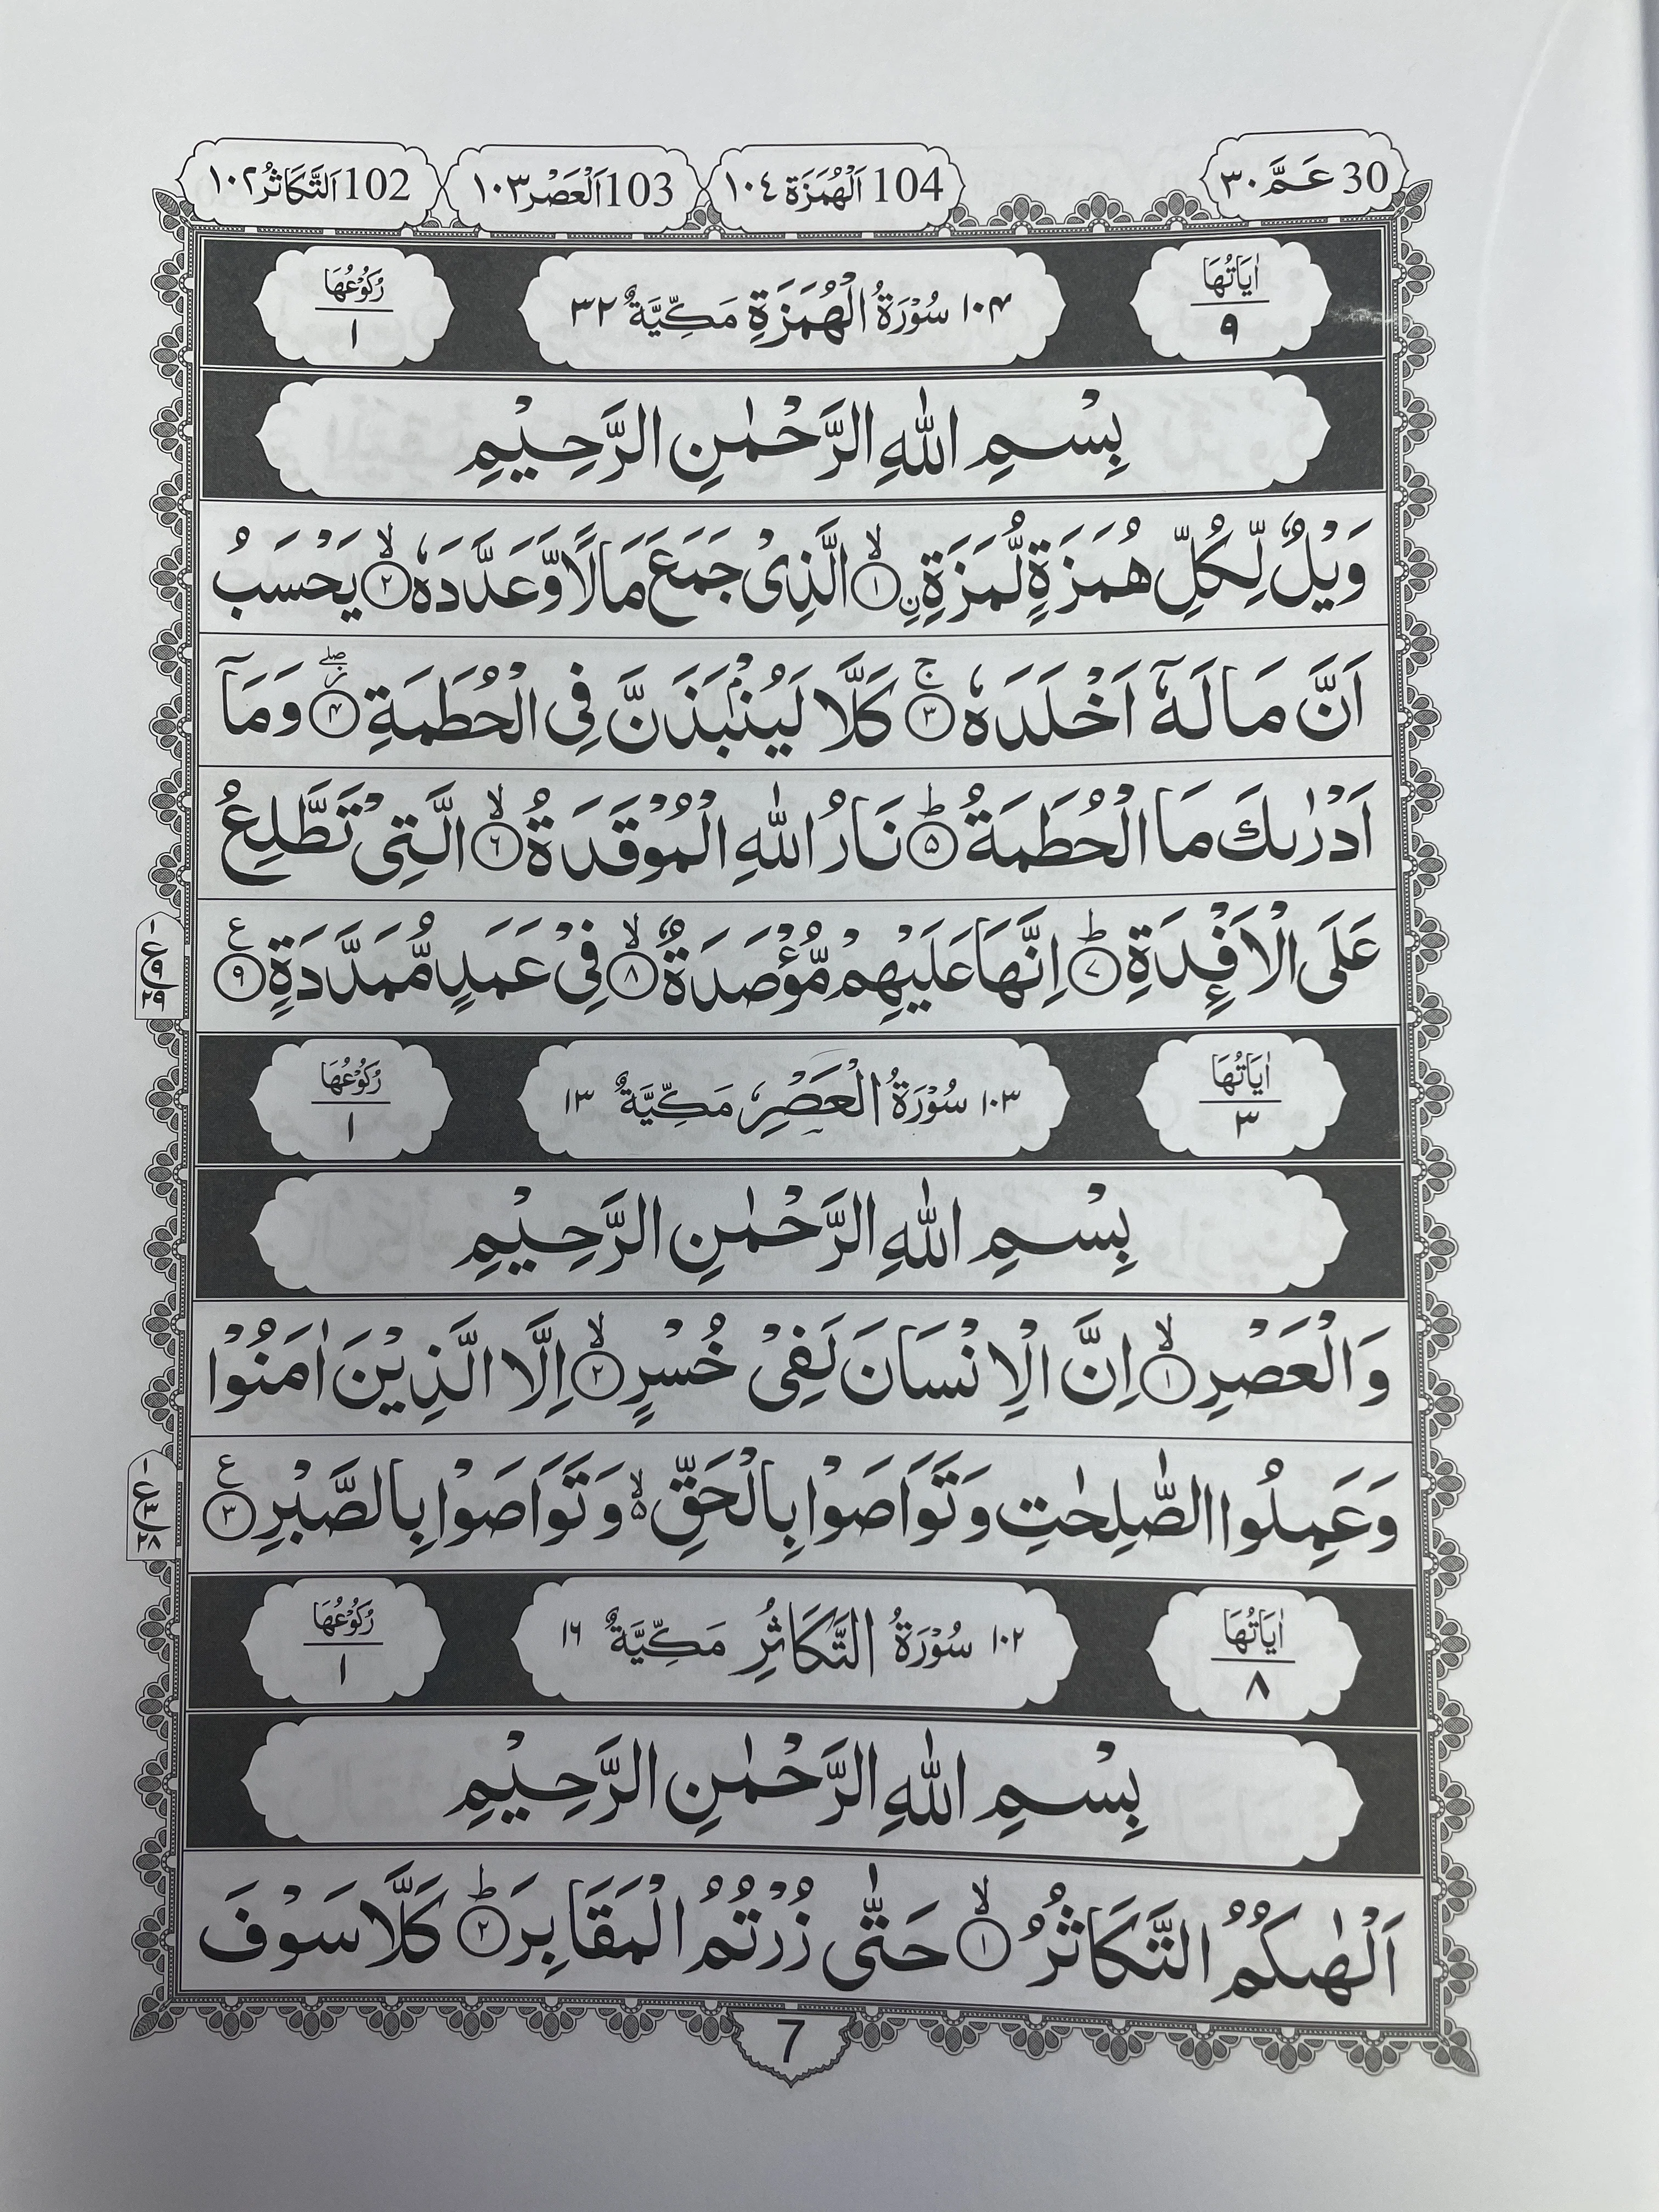 30 عَمَّ ٣٠
104 اَلْهُمَزَة ١٠٤
103 اَلْعَصْر ١٠٣
102 اَلتَّكَاثُر ١٠٢
اٰيَاتُهَا ٩
١٠۴ سُوْرَةُ الْهُمَزَةِ مَكِّيَّةٌ ٣٢
رُكُوْعُهَا ١
بِسْمِ اللّٰهِ الرَّحْمٰنِ الرَّحِيْمِ
وَيْلٌ لِّكُلِّ هُمَزَةٍ لُّمَزَةِ ۨ ۙ﴿١﴾ الَّذِىْ جَمَعَ مَالًا وَّعَدَّدَهٗ ۙ﴿٢﴾ يَحْسَبُ
اَنَّ مَالَهٗٓ اَخْلَدَهٗ ۚ﴿٣﴾ كَلَّا لَيُنْۢبَذَنَّ فِى الْحُطَمَةِ ۖ﴿۴﴾ وَمَآ
اَدْرٰىكَ مَا الْحُطَمَةُ ؕ﴿۵﴾ نَارُ اللّٰهِ الْمُوْقَدَةُ ۙ﴿٦﴾ الَّتِىْ تَطَّلِعُ
عَلَى الْاَفْـِٕدَةِ ؕ﴿٧﴾ اِنَّهَا عَلَيْهِمْ مُّؤْصَدَةٌ ۙ﴿٨﴾ فِىْ عَمَدٍ مُّمَدَّدَةٍ ﴿٩﴾ ع
١ ع ٩ ٢٩
اٰيَاتُهَا ٣
١٠٣ سُوْرَةُ الْعَصْرِ مَكِّيَّةٌ ١٣
رُكُوْعُهَا ١
بِسْمِ اللّٰهِ الرَّحْمٰنِ الرَّحِيْمِ
وَالْعَصْرِ ۙ﴿١﴾ اِنَّ الْاِنْسَانَ لَفِىْ خُسْرٍ ۙ﴿٢﴾ اِلَّا الَّذِيْنَ اٰمَنُوْا
وَعَمِلُوا الصّٰلِحٰتِ وَتَوَاصَوْا بِالْحَقِّ ۙ۬ وَتَوَاصَوْا بِالصَّبْرِ ﴿٣﴾ ع
١ ع ٣ ٢٨
اٰيَاتُهَا ٨
١٠٢ سُوْرَةُ التَّكَاثُرِ مَكِّيَّةٌ ١٦
رُكُوْعُهَا ١
بِسْمِ اللّٰهِ الرَّحْمٰنِ الرَّحِيْمِ
اَلْهٰىكُمُ التَّكَاثُرُ ۙ﴿١﴾ حَتّٰى زُرْتُمُ الْمَقَابِرَ ؕ﴿٢﴾ كَلَّا سَوْفَ
7